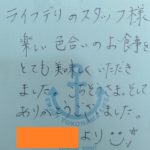 ライフデリのスタッフ様
楽しい色合いのお食事を
とても美味しくいただき
ました。のどごさまでして
ありがとうございました。
より